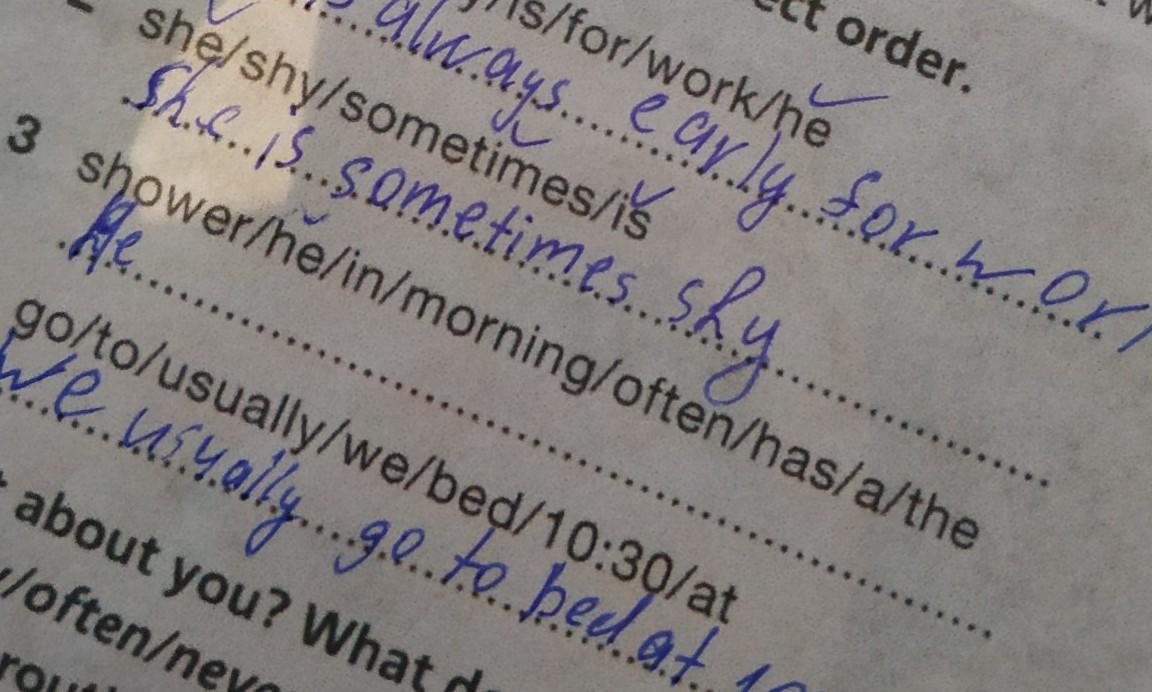 order.
/is/for/work/he
always early for
she/shy/sometimes/is
she is sometimes shy
3 shower/he/in/morning/often/has/a/the
He
go/to/usually/we/bed/10:30/at
we usually go to bed at
about you? What
/often/